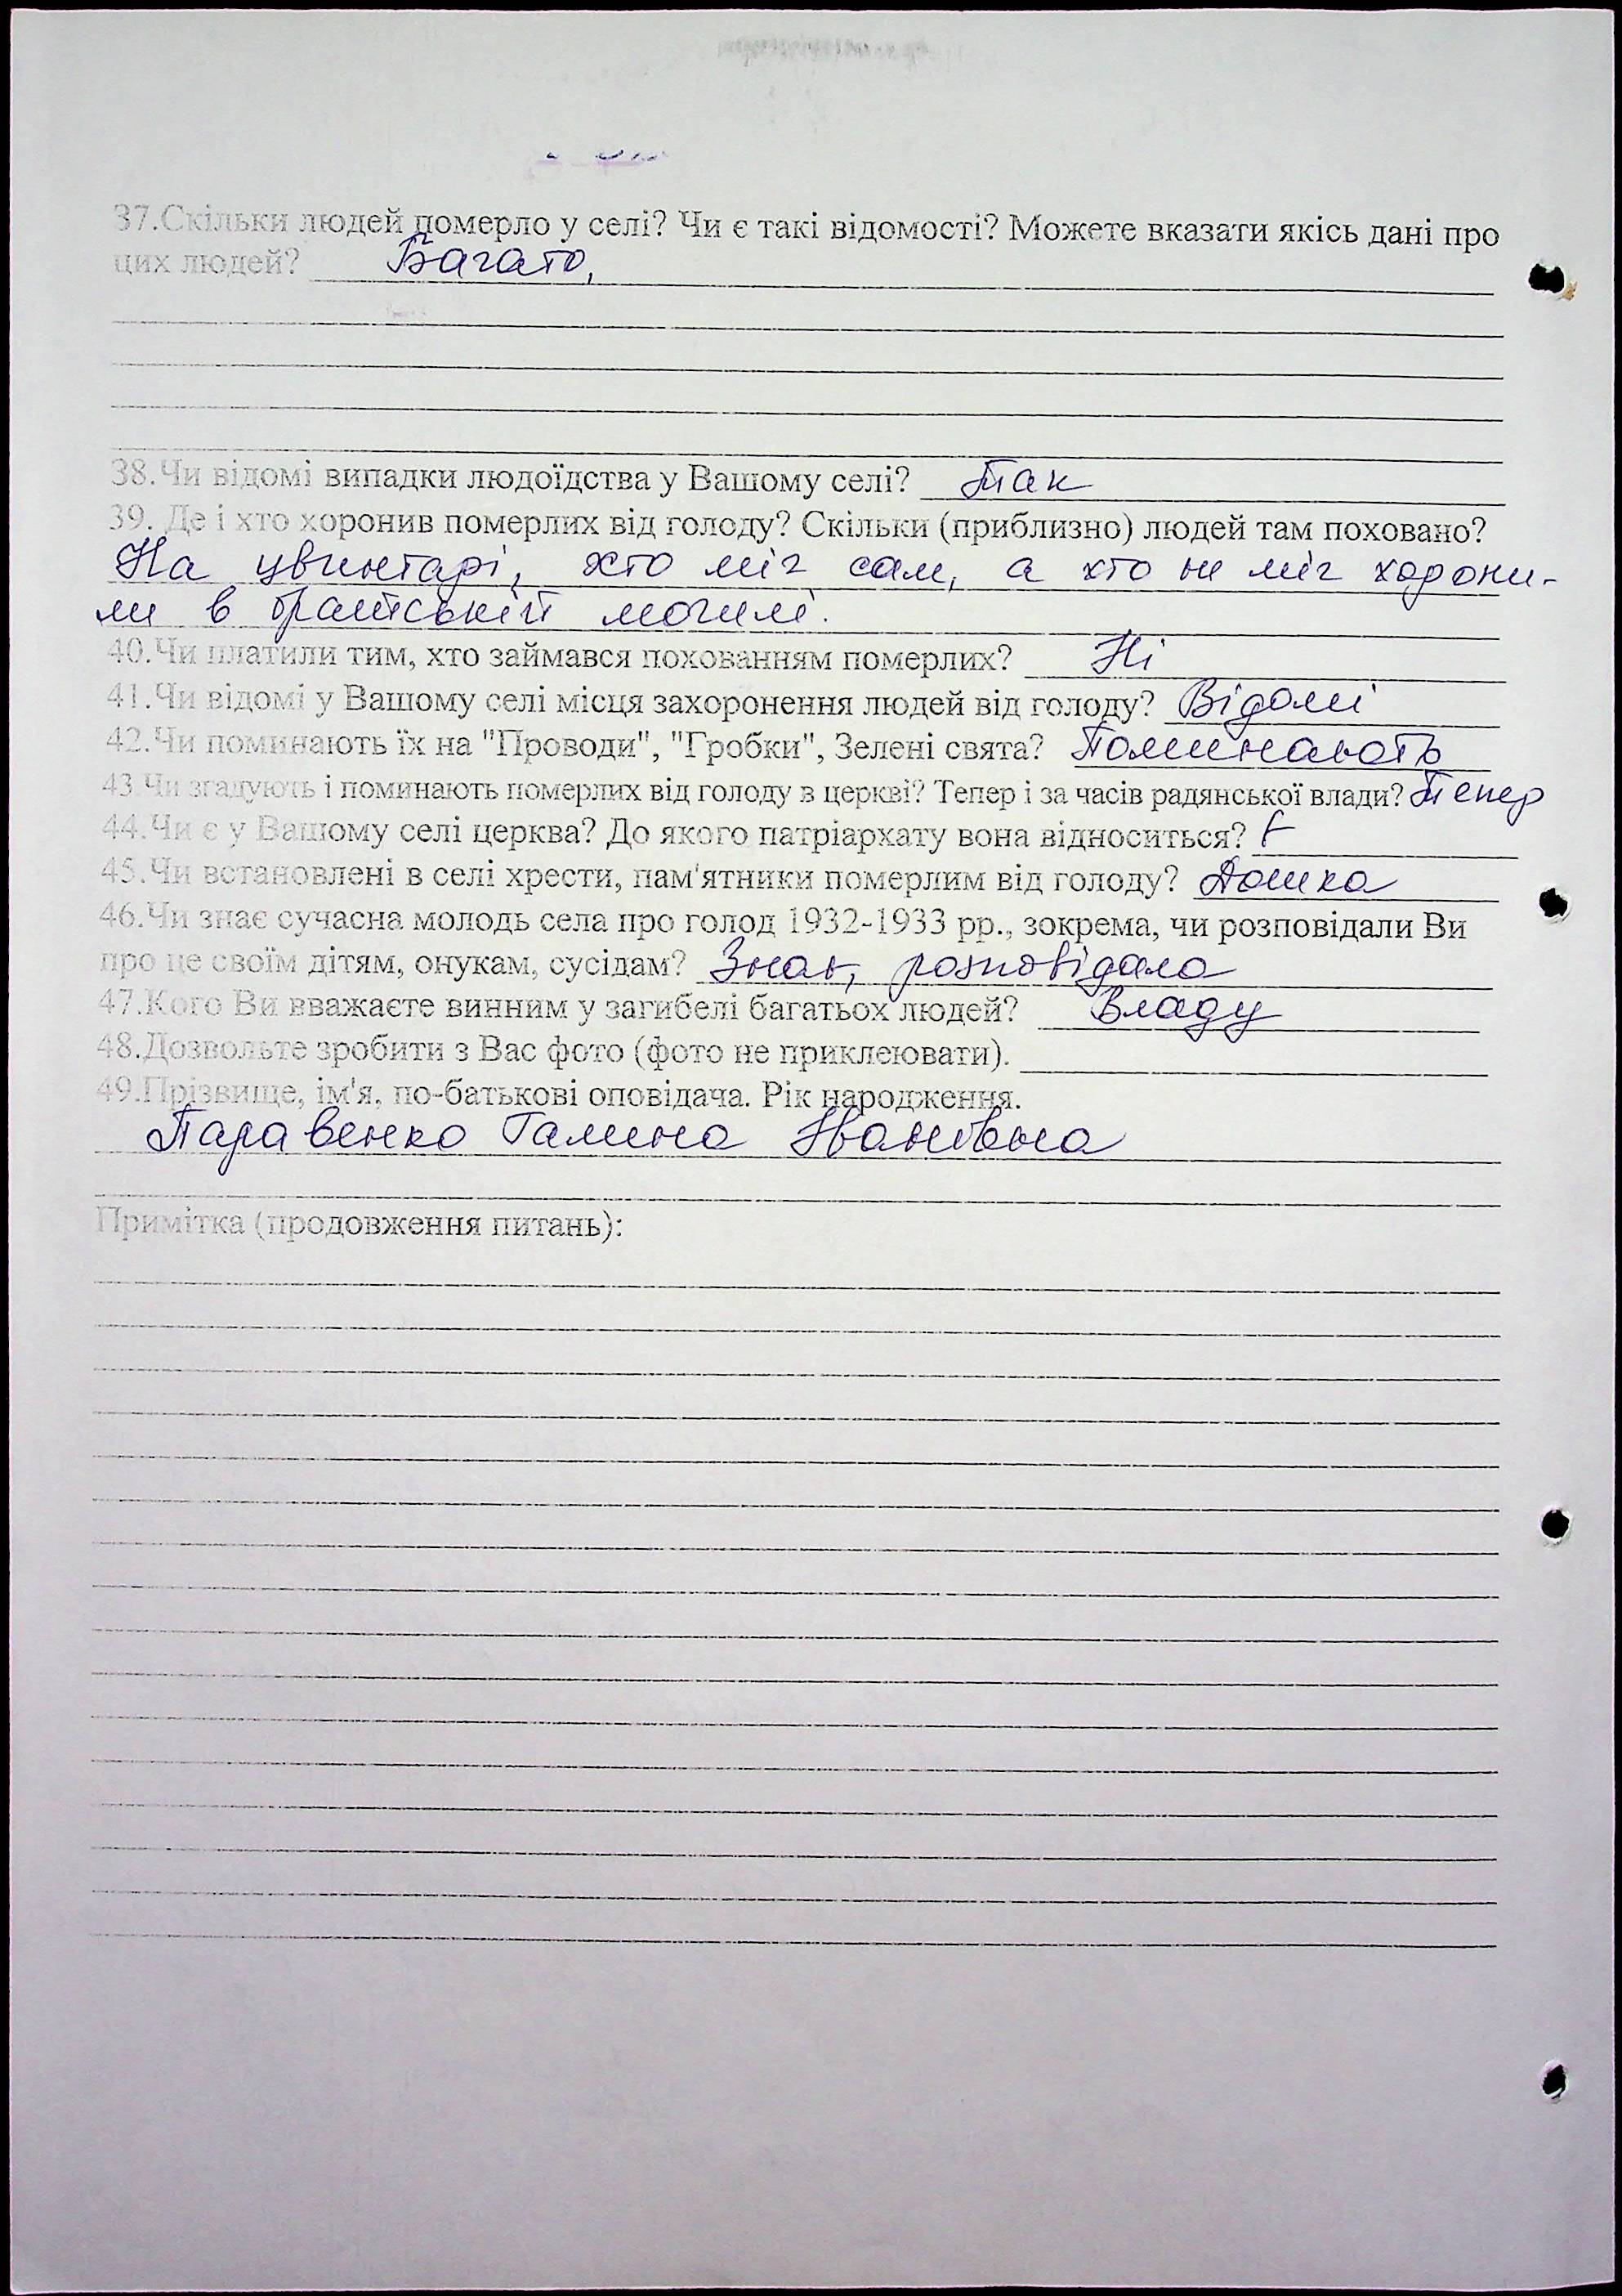 37.Скільки людей померло у селі? Чи є такі відомості? Можете вказати якісь дані про
цих людей? Багато,
38.Чи відомі випадки людоїдства у Вашому селі? Так
39. Де і хто хоронив померлих від голоду? Скільки (приблизно) людей там поховано?
На цвинтарі, хто міг сам, а хто не міг хорони-
ли в братській могилі.
40.Чи платили тим, хто займався похованням померлих? Ні
41.Чи відомі у Вашому селі місця захоронення людей від голоду? Відомі
42.Чи поминають їх на "Проводи", "Гробки", Зелені свята? Поминають
43.Чи згадують і поминають померлих від голоду в церкві? Тепер і за часів радянської влади? Тепер
44.Чи є у Вашому селі церква? До якого патріархату вона відноситься? Є
45.Чи встановлені в селі хрести, пам'ятники померлим від голоду? Дошка
46.Чи знає сучасна молодь села про голод 1932-1933 рр., зокрема, чи розповідали Ви
про це своїм дітям, онукам, сусідам? Знає, розповідала
47.Кого Ви вважаєте винним у загибелі багатьох людей? Владу
48.Дозвольте зробити з Вас фото (фото не приклеювати).
49.Прізвище, ім'я, по-батькові оповідача. Рік народження.
Таравенко Галина Іванівна
Примітка (продовження питань):